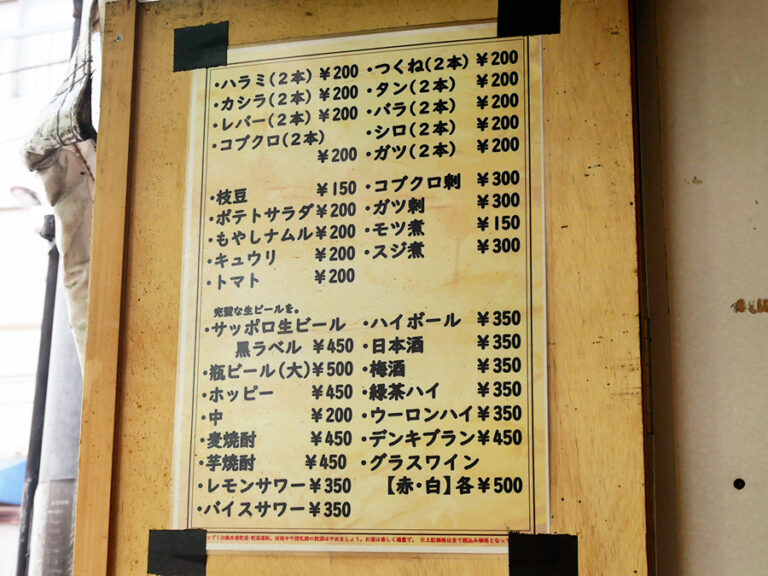 ・ハラミ(2本) ¥200
・カシラ(2本) ¥200
・レバー(2本) ¥200
・コブクロ(2本)
¥200
・つくね(2本) ¥200
・タン(2本) ¥200
・バラ(2本) ¥200
・シロ(2本) ¥200
・ガツ(2本) ¥200
・枝豆 ¥150
・ポテトサラダ ¥200
・もやしナムル ¥200
・キュウリ ¥200
・トマト ¥200
・コブクロ刺 ¥300
・ガツ刺 ¥300
・モツ煮 ¥150
・スジ煮 ¥300
完璧な生ビールを。
・サッポロ生ビール
黒ラベル ¥450
・瓶ビール(大) ¥500
・ホッピー ¥450
・中 ¥200
・麦焼酎 ¥450
・芋焼酎 ¥450
・レモンサワー ¥350
・バイスサワー ¥350
・ハイボール ¥350
・日本酒 ¥350
・梅酒 ¥350
・緑茶ハイ ¥350
・ウーロンハイ ¥350
・デンキブラン ¥450
・グラスワイン
【赤・白】各 ¥500
お酒は楽しく適量で。 ※上記価格は全て税込み価格となっ